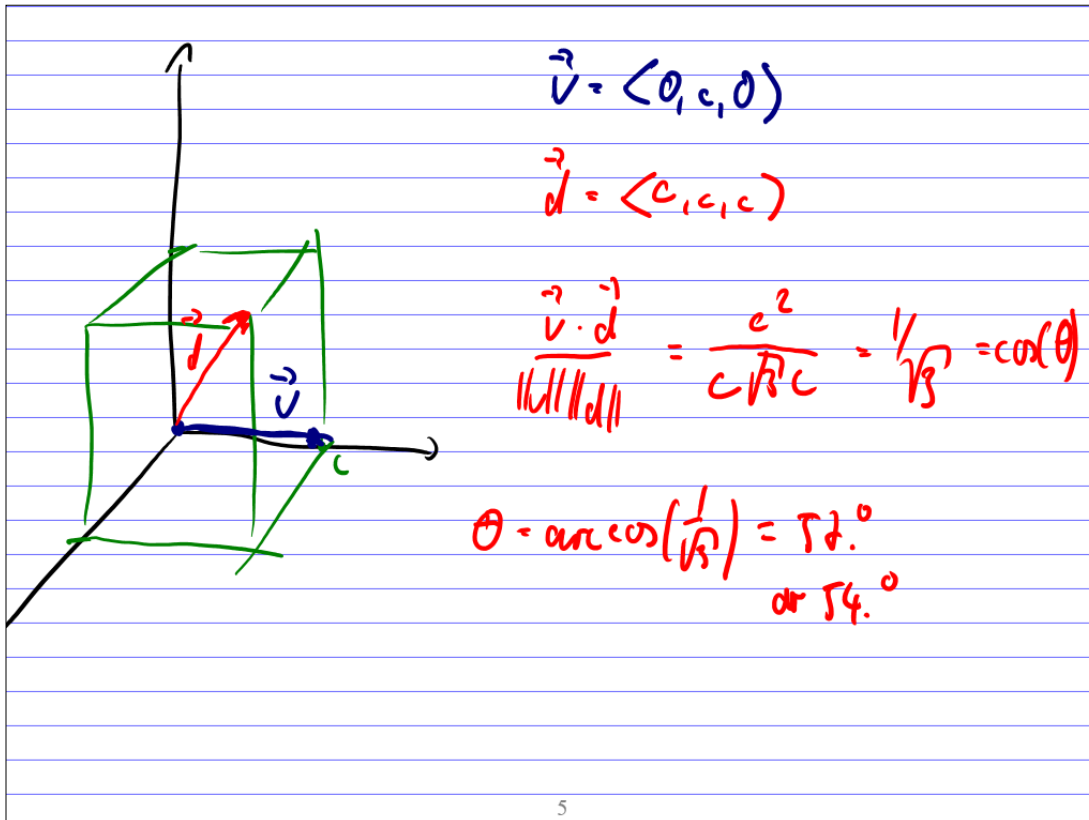 v⃗ = <0, c, 0>
d⃗ = <c, c, c>
v⃗ · d⃗ / ||v|| ||d|| = c² / c√3 c = 1/√3 = cos(θ)
d⃗
v⃗
c
θ = arccos(1/√3) = 52.°
or 54.°
5